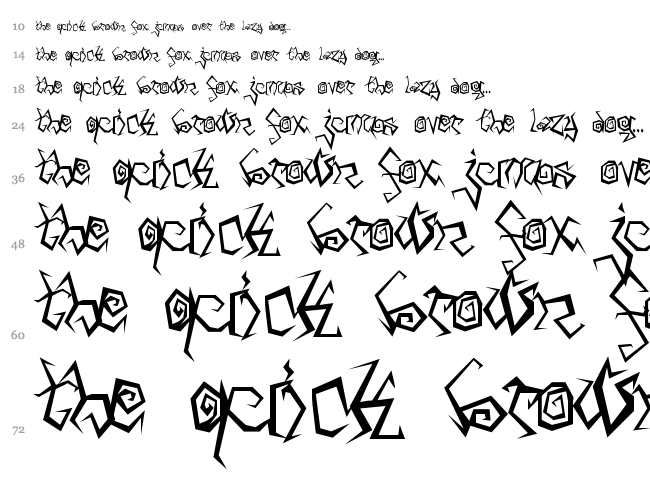 10 the quick brown fox jumps over the lazy dog...
14 the quick brown fox jumps over the lazy dog...
18 the quick brown fox jumps over the lazy dog...
24 the quick brown fox jumps over the lazy dog...
36 the quick brown fox jumps ove
48 the quick brown fox j
60 the quick brown f
72 the quick brown